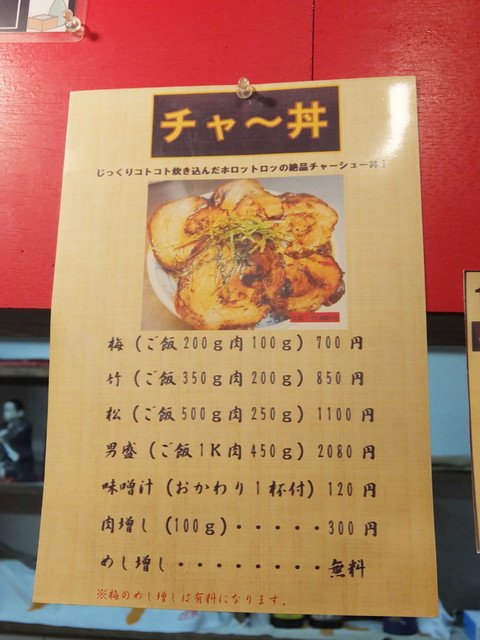 チャ〜丼
じっくりコトコト炊き込んだホロットロッの絶品チャーシュー丼！
梅（ご飯200ｇ肉100ｇ）700円
竹（ご飯350ｇ肉200ｇ）850円
松（ご飯500ｇ肉250ｇ）1100円
男盛（ご飯1Ｋ肉450ｇ）2080円
味噌汁（おかわり1杯付）120円
肉増し（100ｇ）・・・・・300円
めし増し・・・・・・・・無料
※梅のめし増しは有料になります。